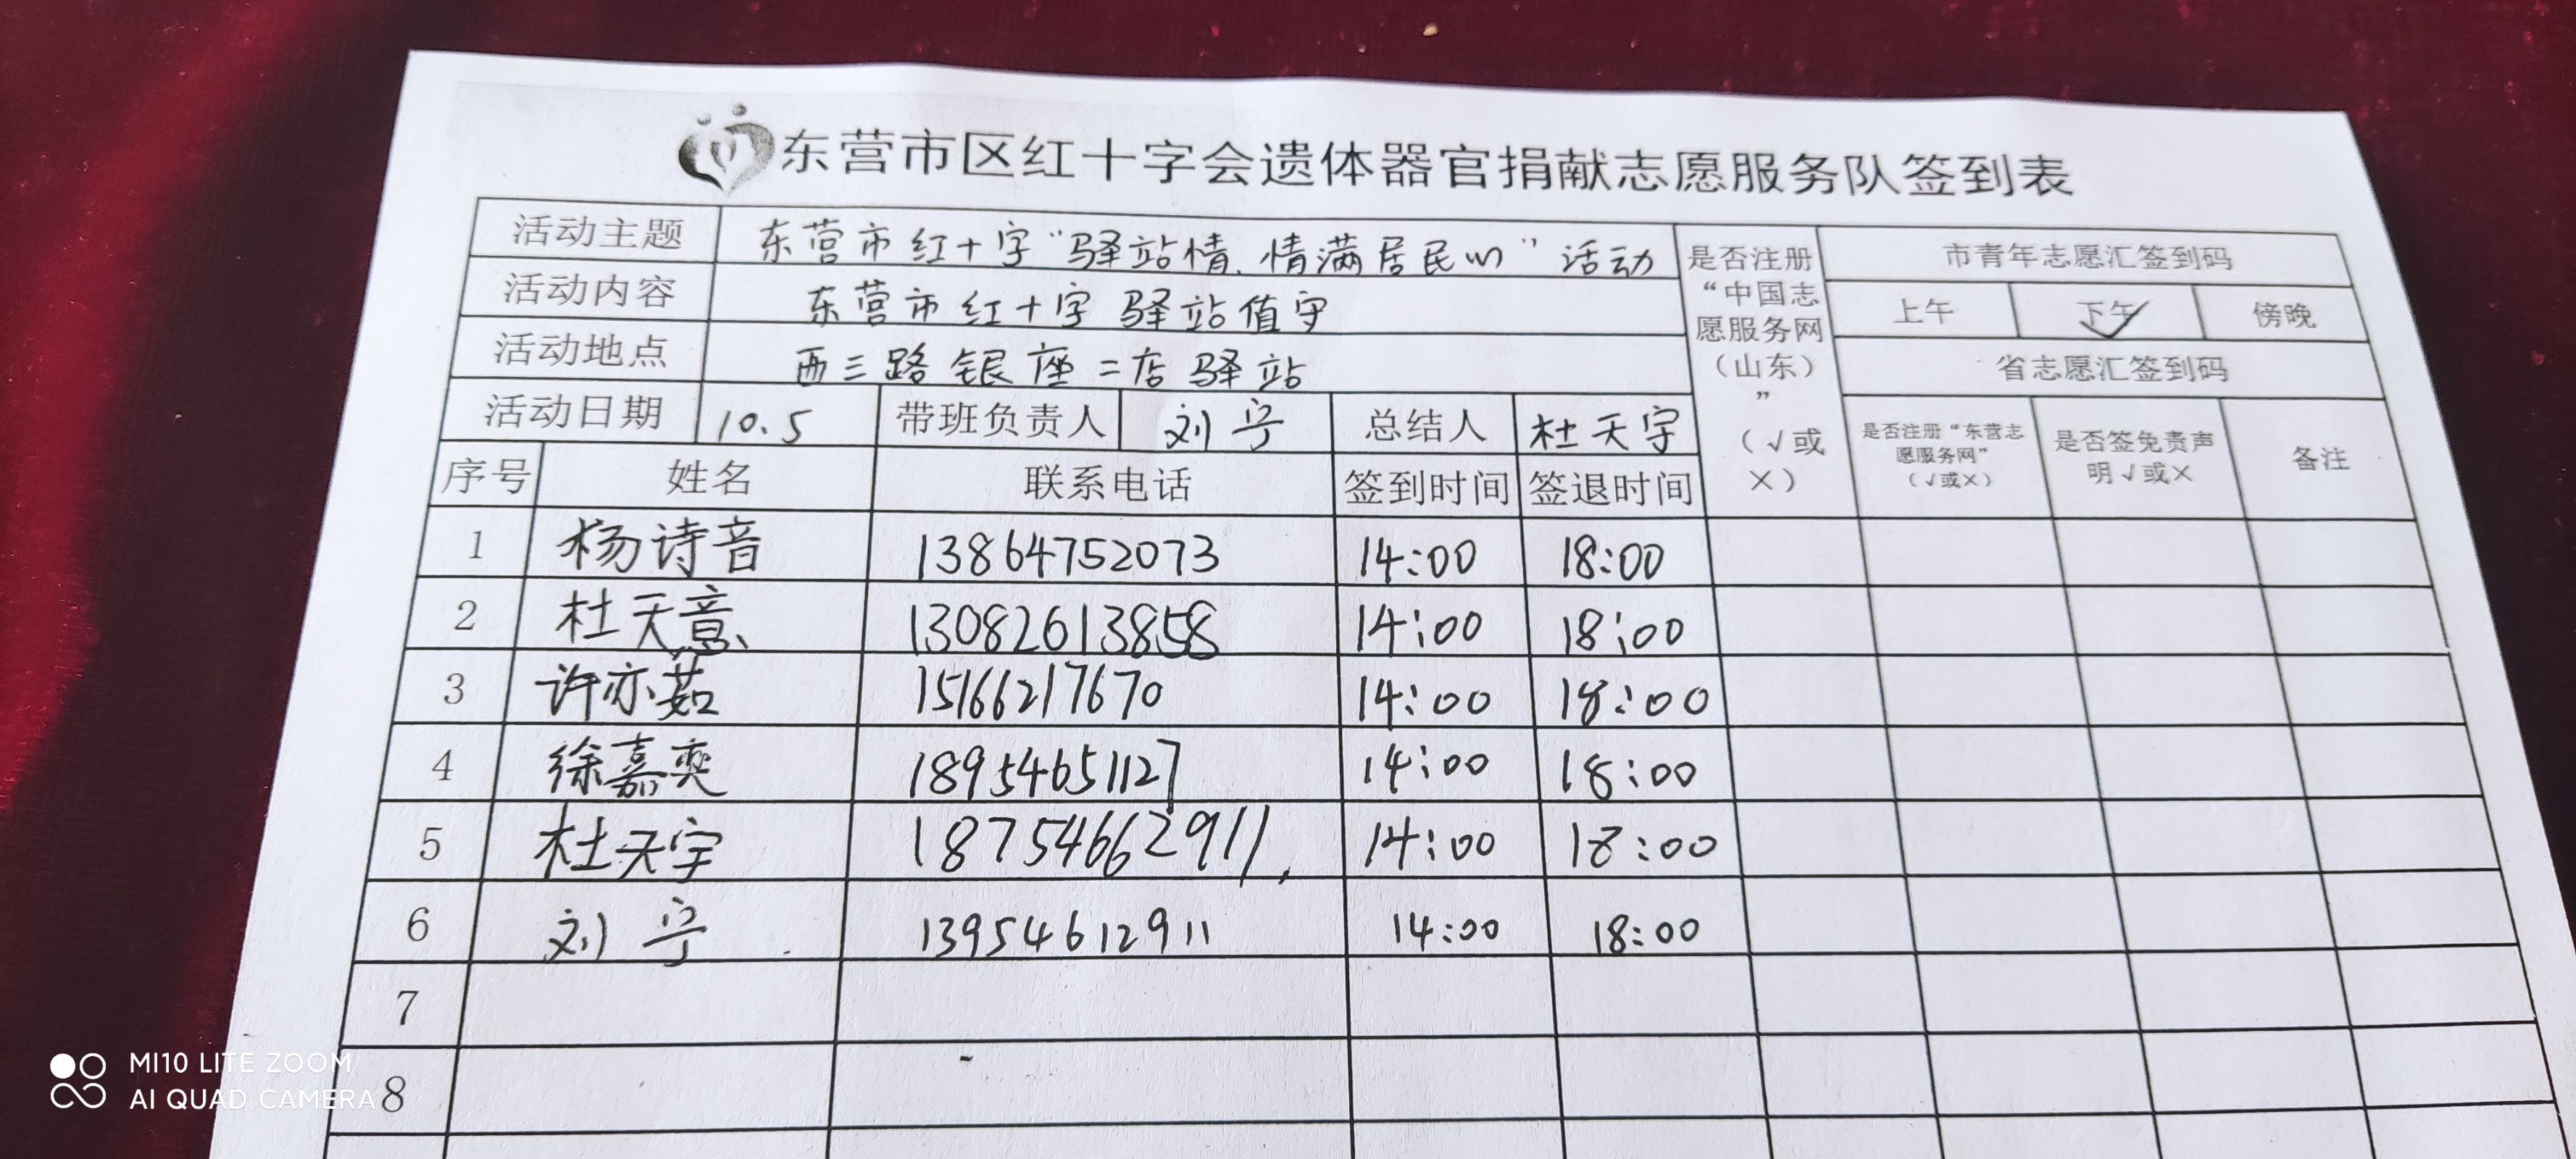 东营市区红十字会遗体器官捐献志愿服务队签到表
活动主题 东营市红十字“驿站情、情满居民心”活动
活动内容 东营市红十字驿站值守
活动地点 西三路银座二店驿站
活动日期 10.5 带班负责人 刘宁 总结人 杜天宇
是否注册
“中国志
愿服务网
（山东）
”
（√或
×）
市青年志愿汇签到码
上午 下午 ✓ 傍晚
省志愿汇签到码
是否注册“东营志
愿服务网”
（√或×）
是否签免责声
明√或×
备注
序号 姓名 联系电话 签到时间 签退时间
1 杨诗音 13864752073 14:00 18:00
2 杜天意 13082613858 14:00 18:00
3 许亦茹 15166217670 14:00 18:00
4 徐嘉奕 18954651127 14:00 18:00
5 杜天宇 18754662911 14:00 18:00
6 刘宁 13954612911 14:00 18:00
7
8
MI10 LITE ZOOM
AI QUAD CAMERA